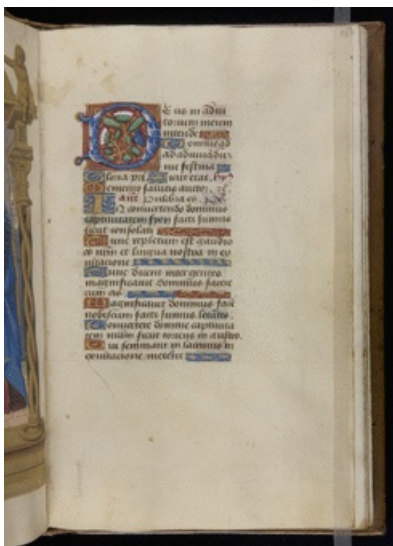 Deus in adiu
torium meum
intende
Domine ad
adiuuandu
me festina
Gloria pri Sicut erat. hy
Memento salutis auctor.
ant Pulchra es. ps
In conuertendo dominus
captiuitatem syon facti sumus
sicut consolati
Tunc repletum est gaudio
os nrm et lingua nostra in ex
ultacione
Tunc dicent inter gentes
magnificauit dominus facere
cum eis
Magnificauit dominus face
nobiscum facti sumus letantes
Conuertere domine captiuita
tem nram sicut torrens in austro.
Qui seminant in lacrimis in
exultacione metent